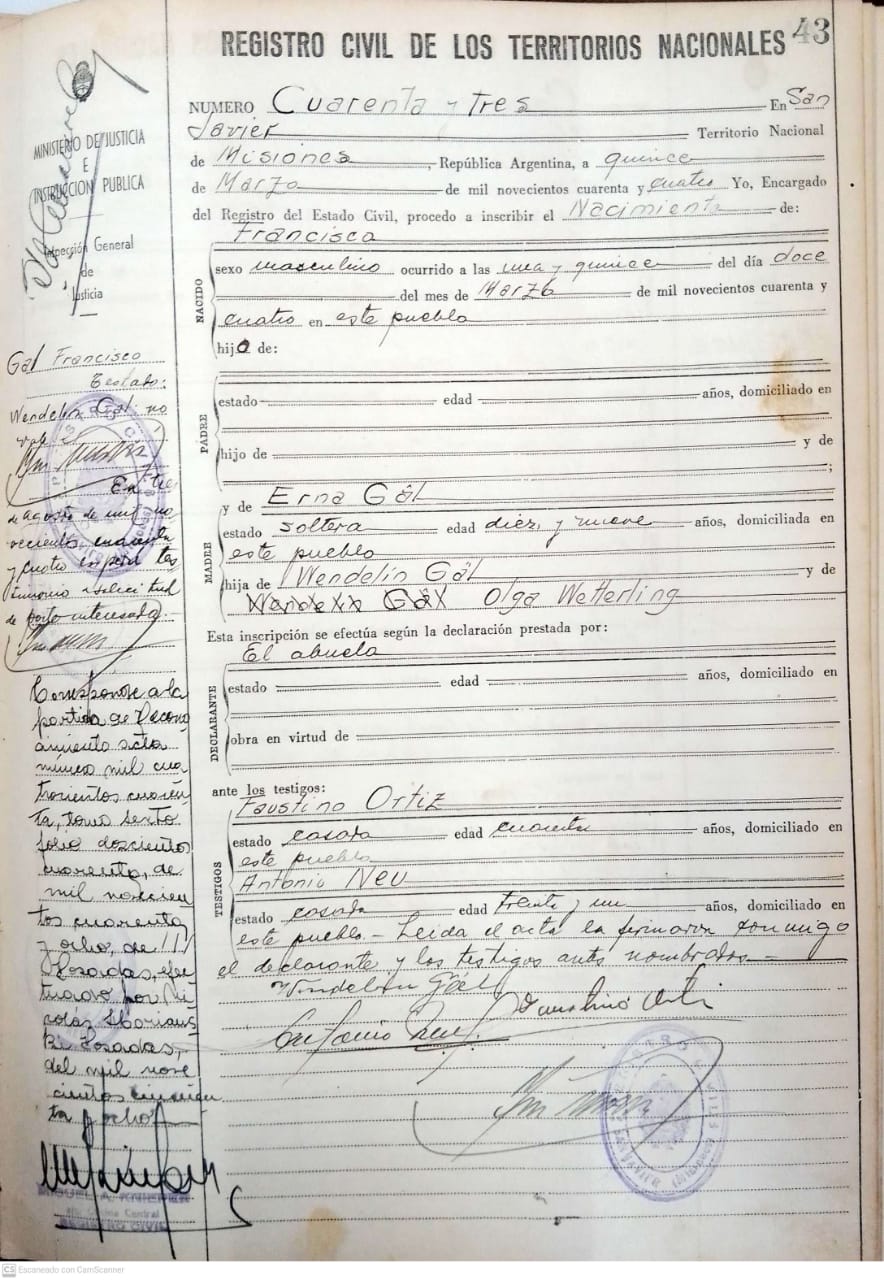 REGISTRO CIVIL DE LOS TERRITORIOS NACIONALES 43
MINISTERIO DE JUSTICIA
E
INSTRUCCION PUBLICA
Inspección General
de
Justicia
NUMERO Cuarenta y Tres En San
Javier Territorio Nacional
de Misiones, República Argentina, a quince
de Marzo de mil novecientos cuarenta y cuatro Yo, Encargado
del Registro del Estado Civil, procedo a inscribir el Nacimiento de:
NACIDO
Francisco
sexo masculino ocurrido a las una y quince del día doce
del mes de Marzo de mil novecientos cuarenta y
cuatro en este pueblo
hijo de:
PADRE
estado edad años, domiciliado en
hijo de y de
;
MADRE
y de Erna Gäl
estado soltera edad diez y nueve años, domiciliada en
este pueblo
hija de Wendelin Gäl y de
Wendelin Gäl Olga Wetterling
Esta inscripción se efectúa según la declaración prestada por:
DECLARANTE
El abuelo
estado edad años, domiciliado en
obra en virtud de
ante los testigos:
TESTIGOS
Faustino Ortiz
estado casado edad cuarenta años, domiciliado en
este pueblo
Antonio Neu
estado casado edad treinta y un años, domiciliado en
este pueblo - Leida el acta la firmaron conmigo
el declarante y los testigos antes nombrados
Wendelin Gäl
Faustino Orti
Antonio Neu
Gäl Francisco
Testado:
Wendelin Gäl no
vale
En tres
de agosto de mil no
vecientos cuarenta
y cuatro expedí tes
timonio a solicitud
de parte interesada.
Corresponde a la
partida de Recono
cimiento acta
número mil cua
trocientos cuaren
ta, tomo sexto
folio doscientos
cuarenta, de
mil novecien
tos cuarenta
y ocho, de ///
Posadas, efec
tuado por Ni
colás
Posadas,
del mil nove
cientos cincuen
ta y ocho
Oficina Central
REGISTRO CIVIL
CS Escaneado con CamScanner